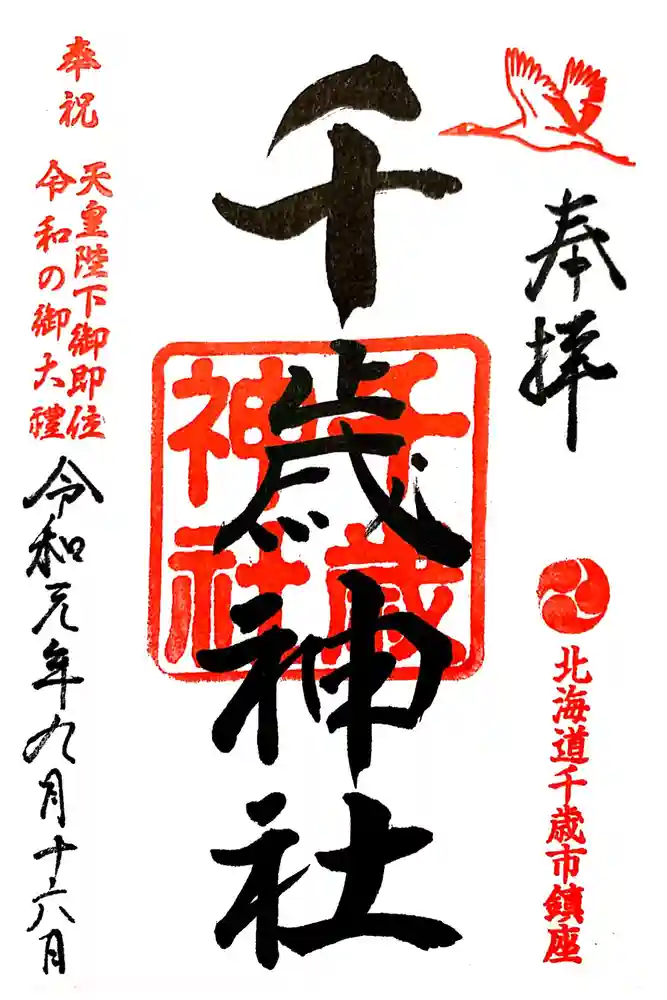 奉拝
北海道千歳市鎮座
千歳神社
千歳
神社
奉祝
天皇陛下御即位
令和の御大禮
令和元年九月十六日